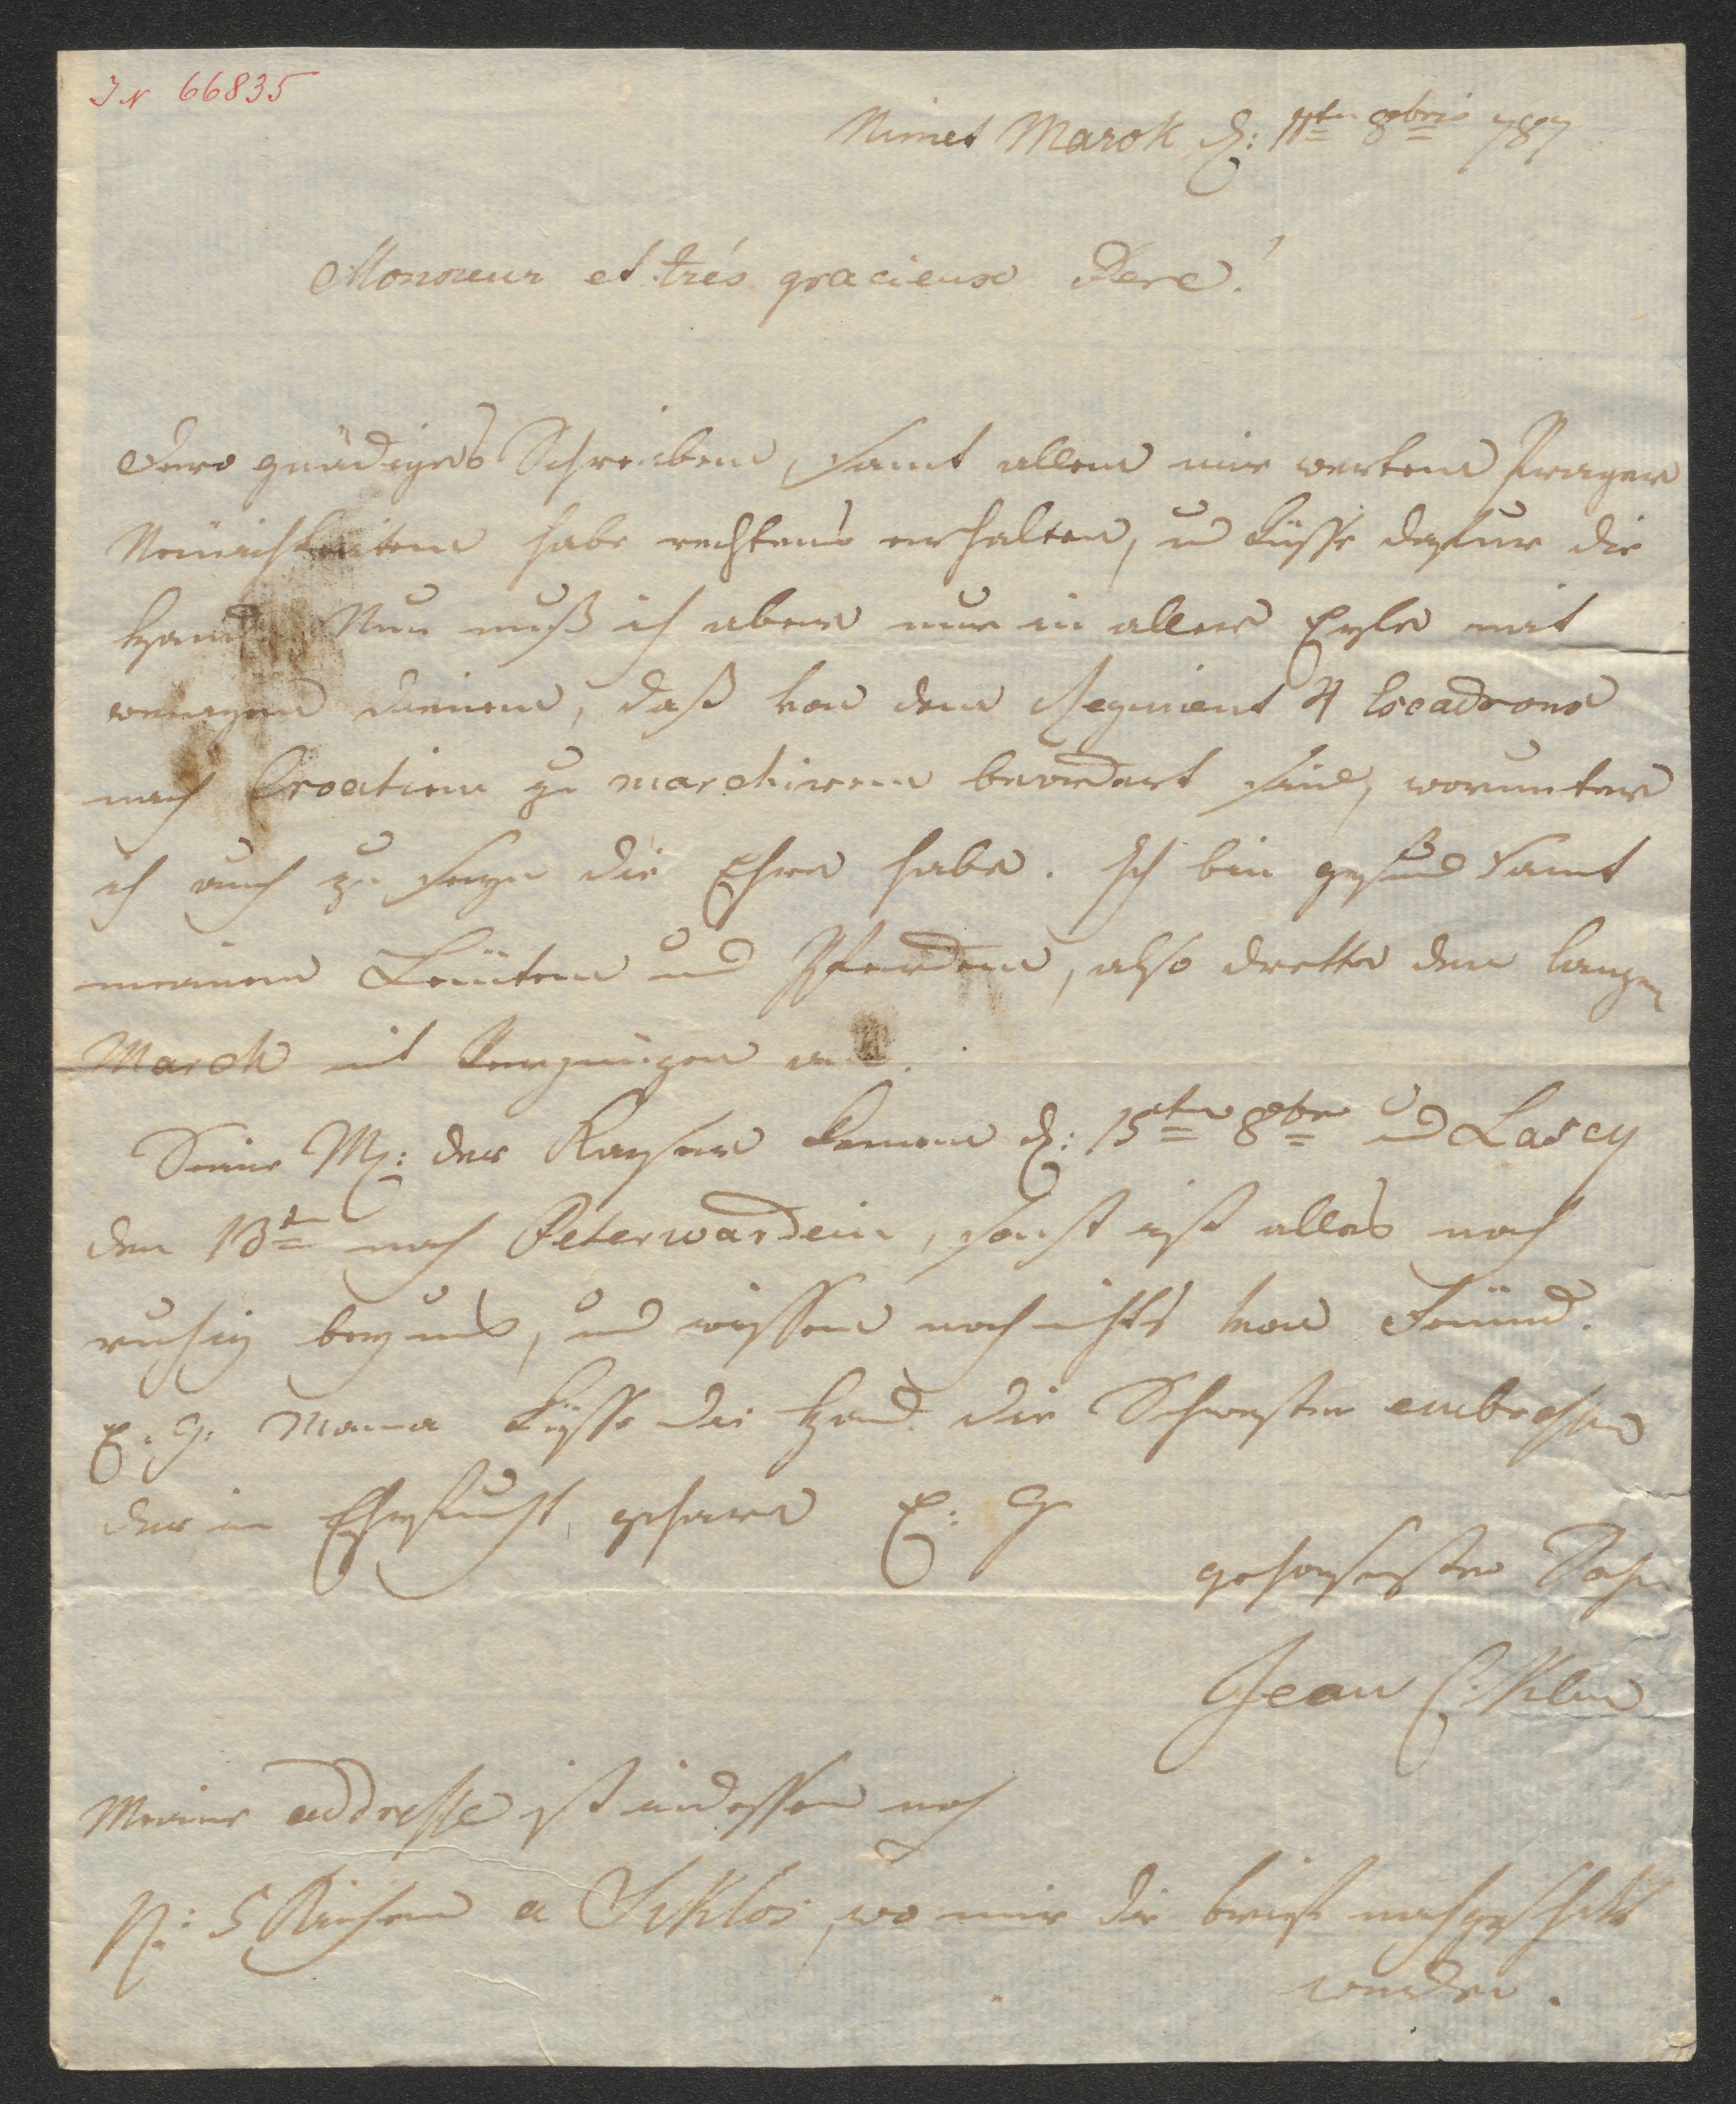 JN 66835
Nimet Marok d: 11tn 8bris 787
Monsieur et trés gracieux Pere!
Dero gnädiges Schreiben, samt allen mir werten Prager
Neüichkeiten habe rechtens erhalten, und küsse dafür die
Hand. Nun muß ich aber nur in aller Eyle mit
wenigen dienen, daß von dem Regiment 4 Escadrons
nach Croatien zu marchiren beordert sind, worunter
ich auch zu seyn die Ehre habe. Ich bin gesund samt
meinen Leüten und Pferden, also drette den langen
March mit Vergnügen an.
Seine M: der Kayser kommen d: 15tn 8br und Lascy
den 13tn nach Peterwardein, sonst ist alles noch
ruhig bey uns, und wissen noch nichts von Feünd.
E: G: Mama küsse die Hand die Schwester
der in Ehrfurcht geharre E: G
gehorsamster Sohn
Jean
Meine addresse ist indessen noch
P: 5 Kirchen a Siklos, wo mir die brief nachgeschikt
werden.